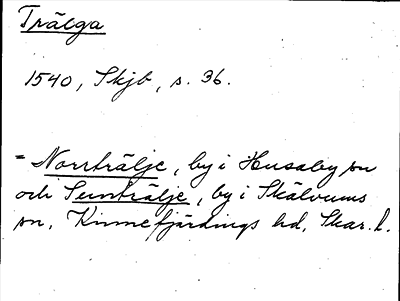 Trälga
1540, Skjb, s. 36.
= Norrträlje, by i Husaby sn
och Sunträlje, by i Skälvums
sn, Kinnefjärdings hd, Skar. l.